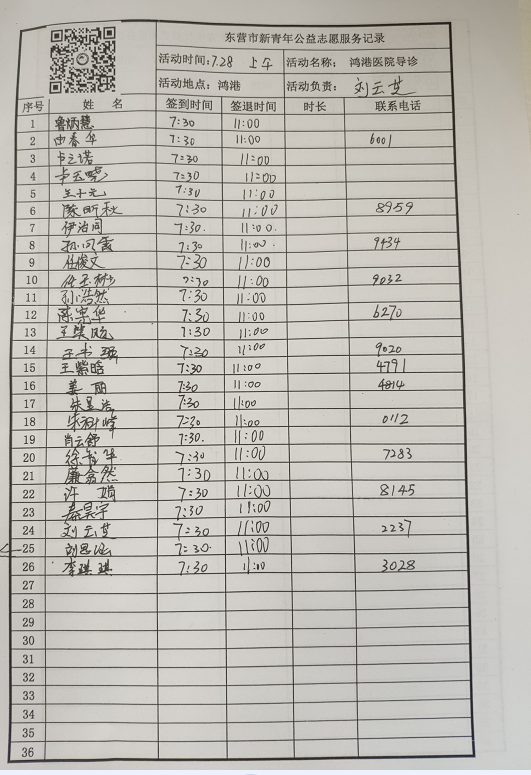 东营市新青年公益志愿服务记录
活动时间:7.28 上午 活动名称: 鸿港医院导诊
活动地点: 鸿港 活动负责: 刘云芝
序号 姓 名 签到时间 签退时间 时长 联系电话
1 鲁炳慧 7:30 11:00
2 由春华 7:30 11:00 6001
3 卢之诺 7:30 11:00
4 7:30 11:00
5 7:30 11:00
6 陈昕秋 7:30 11:00 8959
7 伊治同 7:30. 11:00.
8 7:30 11:00. 9434
9 任俊文 7:30 11:00
10 任玉树 7:30 11:00 9032
11 孙浩然 7:30 11:00
12 陈宗华 7:30 11:00 6270
13 7:30 11:00
14 7:30 11:00 9020
15 王紫晗 7:30 11:00 4791
16 姜丽 7:30 11:00 4814
17 朱昱洁 7:30 11:00
18 7:30 11:00 0112
19 肖云舒 7:30. 11:00
20 徐智华 7:30 11:00 7283
21 7:30 11:00
22 许娟 7:30 11:00 8145
23 秦昊宇 7:30 11:00
24 刘云芝 7:30 11:00 2237
25 7:30. 11:00
26 李琪琪 7:30 11:00 3028
27
28
29
30
31
32
33
34
35
36